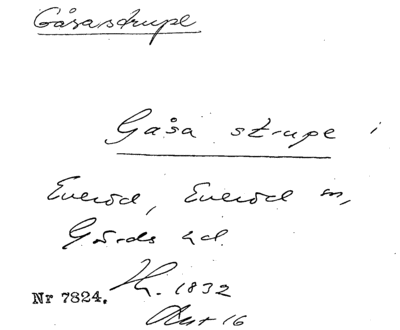 Gåsastrupe
Gåsa strupe i
Everöd, Everöd sn,
Gärds hd.
1832
Nr 7824.
Akt 16